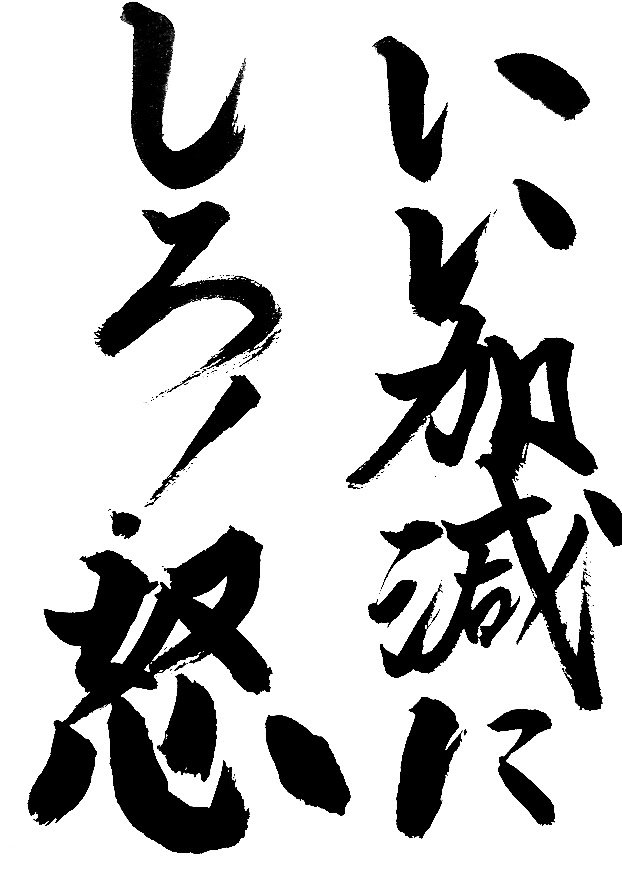 いい加減に
しろ!怒